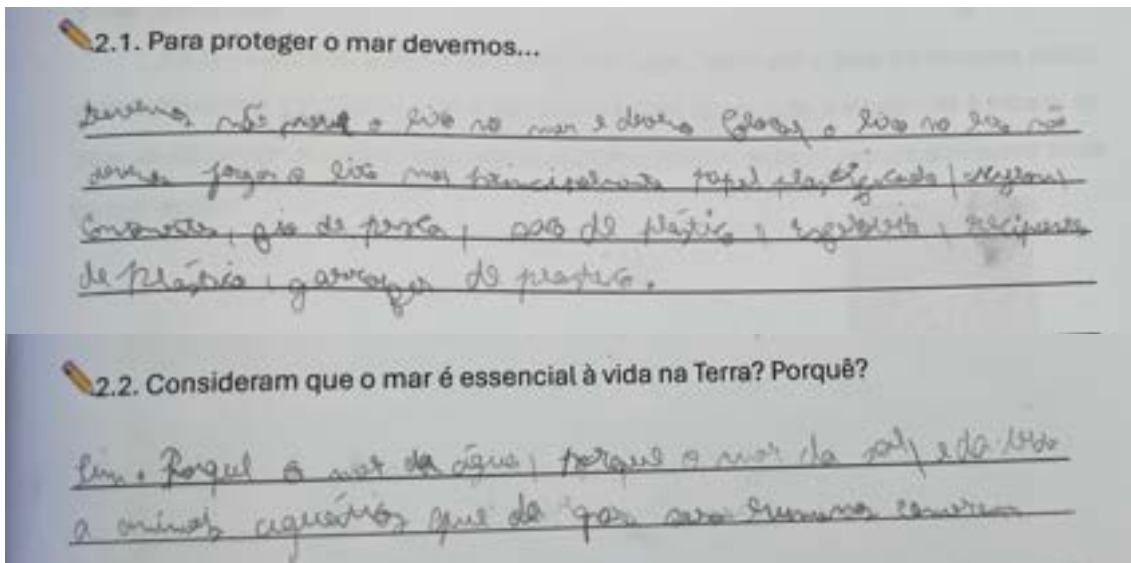 2.1. Para proteger o mar devemos...
devemos não o lixo no mar e devemos colocar o lixo no lixo não
devemos jogar o lixo mar principalmente papel plastificado,
fio de pesca, saco de plástico, recipiente
de plástico, garrafas de plastico.
2.2. Consideram que o mar é essencial à vida na Terra? Porquê?
Sim. Porque o mar da água, porque o mar da sal, e da vida
a animais aquáticos que da humanos comerem